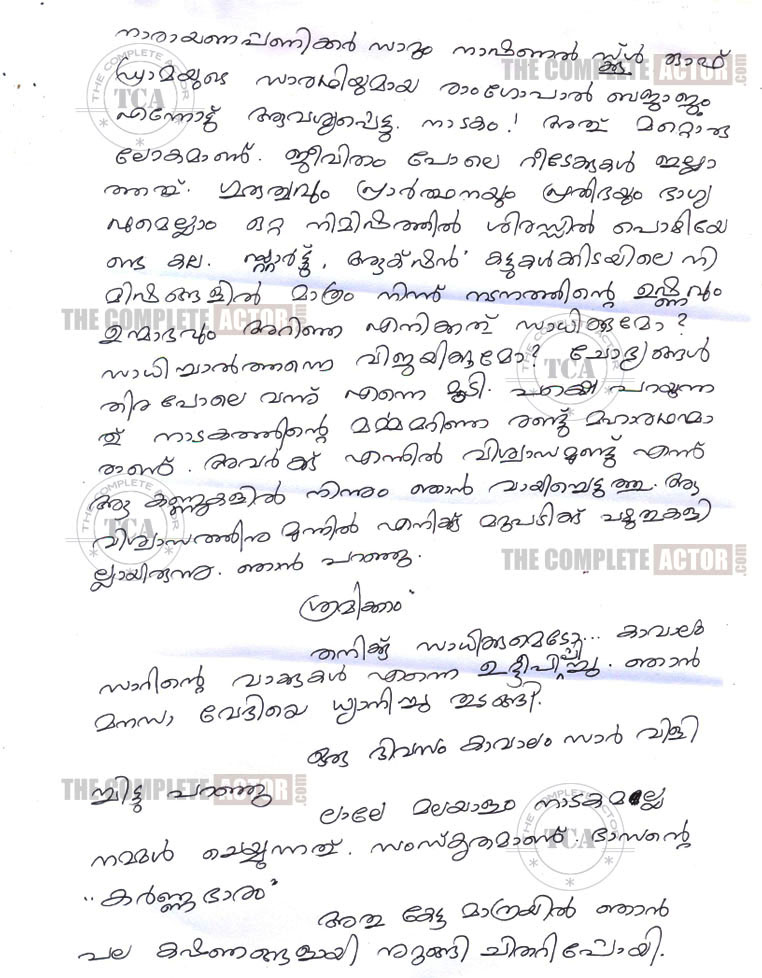 നാരായണപണിക്കർ സാറും നാഷണൽ സ്ക്കൂൾ ഓഫ്
ഡ്രാമയുടെ സാരഥിയുമായ രാംഗോപാൽ ബജാജും
എന്നോട് ആവശ്യപ്പെട്ടു. നാടകം! അത് മറ്റൊരു
ലോകമാണ്. ജീവിതം പോലെ റീടേക്കുകൾ ഇല്ലാ
ത്തത്. ഗുരുത്വവും പ്രാർത്ഥനയും പ്രതിഭയും ഭാഗ്യ
വുമെല്ലാം ഒറ്റ നിമിഷത്തിൽ ശിരസ്സിൽ പൊഴിയേ
ണ്ട കല. സ്റ്റാർട്ട്, ആക്ഷൻ കട്ടുകൾക്കിടയിലെ നി
മിഷങ്ങളിൽ മാത്രം നിന്ന് നടനത്തിന്റെ ഉഷ്ണവും
ഉന്മാദവും അറിഞ്ഞ എനിക്കത് സാധിക്കുമോ?
സാധിച്ചാൽത്തന്നെ വിജയിക്കുമോ? ചോദ്യങ്ങൾ
തിര പോലെ വന്ന് എന്നെ മൂടി. പക്ഷെ പറയുന്ന
ത് നാടകത്തിന്റെ മർമ്മമറിഞ്ഞ രണ്ട് മഹാരഥന്മാ
രാണ്. അവർക്ക് എന്നിൽ വിശ്വാസമുണ്ട് എന്ന്
ആ കണ്ണുകളിൽ നിന്നും ഞാൻ വായിച്ചെടുത്തു. ആ
വിശ്വാസത്തിനു മുന്നിൽ എനിക്ക് മറുപടിക്ക് പഴുതുകളി
ല്ലായിരുന്നു. ഞാൻ പറഞ്ഞു.
ശ്രമിക്കാം
തനിക്ക് സാധിക്കുമെടോ... കാവാലം
സാറിന്റെ വാക്കുകൾ എന്നെ ഉദ്ദീപിപ്പിച്ചു. ഞാൻ
മനസാ വേദിയെ ധ്യാനിച്ചു തുടങ്ങി.
ഒരു ദിവസം കാവാലം സാർ വിളി
ച്ചിട്ടു പറഞ്ഞു
ലാലേ മലയാളം നാടകമല്ല
നമ്മൾ ചെയ്യുന്നത്. സംസ്കൃതമാണ്. ഭാസന്റെ
"കർണ്ണഭാരം"
അതു കേട്ട മാത്രയിൽ ഞാൻ
പല കഷണങ്ങളായി നുറുങ്ങി ചിതറിപ്പോയി.
THE COMPLETE ACTOR.com
THE COMPLETE ACTOR.com
THE COMPLETE ACTOR.com
THE COMPLETE ACTOR.com
THE COMPLETE ACTOR TCA
THE COMPLETE ACTOR TCA
THE COMPLETE ACTOR TCA
THE COMPLETE ACTOR TCA